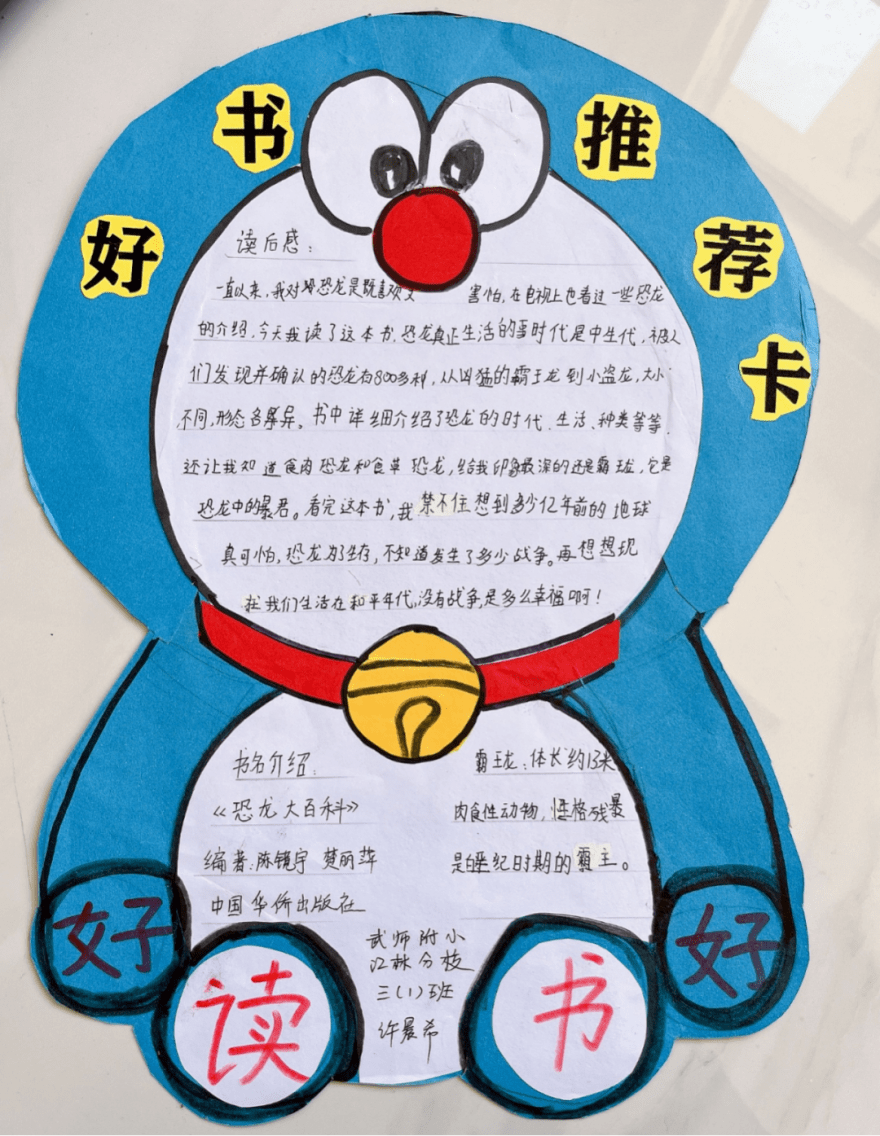 好书推荐卡
读后感：
一直以来，我对恐龙是既喜欢又害怕，在电视上也看过一些恐龙
的介绍，今天我读了这本书，恐龙真正生活的时代是中生代，被人
们发现并确认的恐龙有800多种，从凶猛的霸王龙到小盗龙，大小
不同，形态各异。书中详细介绍了恐龙的时代、生活、种类等等，
还让我知道食肉恐龙和食草恐龙，给我印象最深的还是霸王龙，它是
恐龙中的暴君。看完这本书，我禁不住想到多少亿年前的地球
真可怕，恐龙为了生存，不知道发生了多少战争。再想想现
在我们生活在和平年代，没有战争，是多么幸福啊！
书名介绍：
《恐龙大百科》
编著：陈镜宇 楚丽萍
中国华侨出版社
霸王龙：体长约13米
肉食性动物，性格残暴
是白垩纪时期的霸主。
武师附小
江林分校
三(1)班
许晨希
好读书好